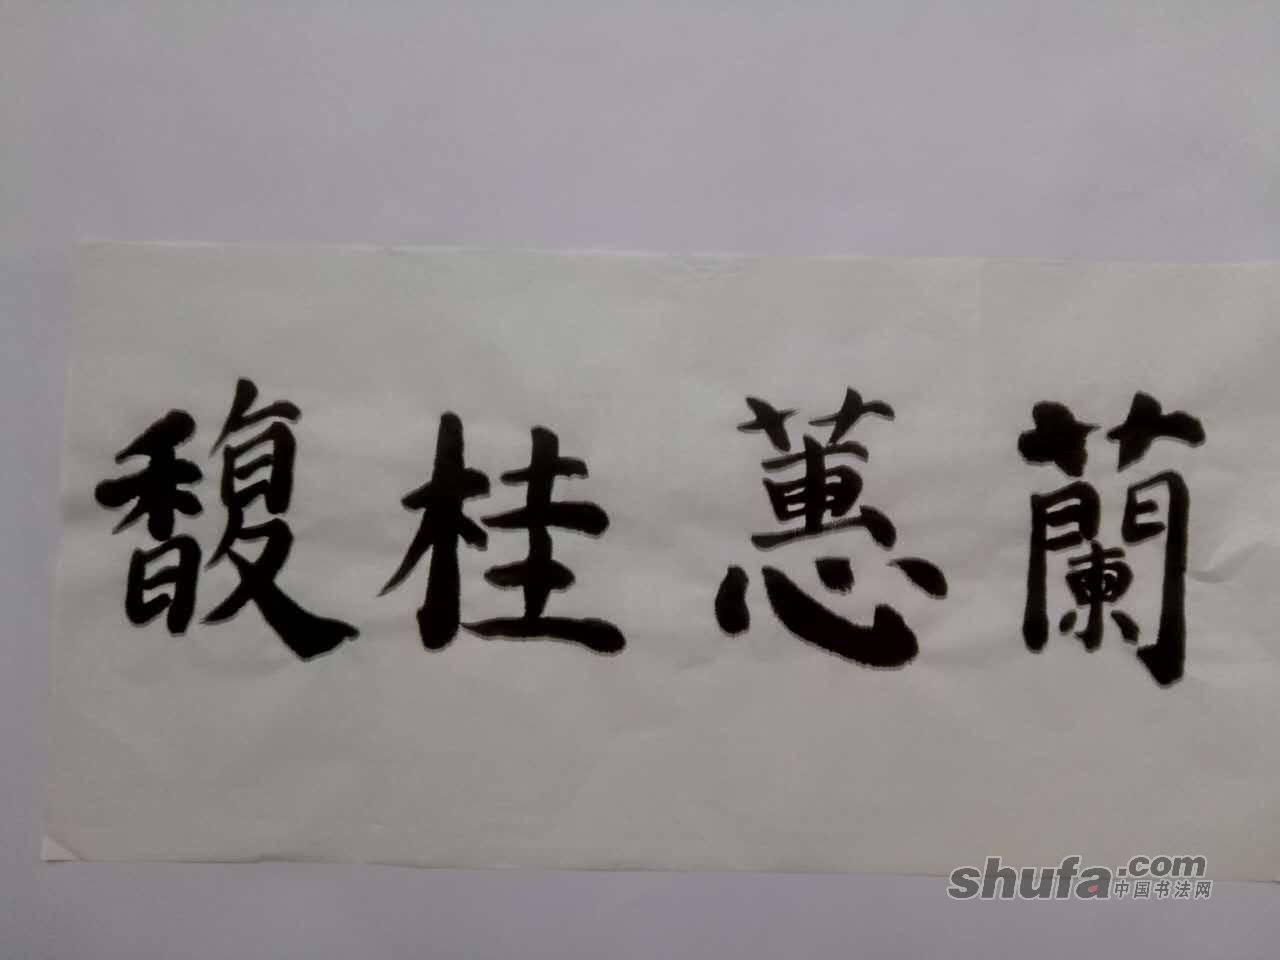 蘭蕙桂馥
shufa.com
中国书法网